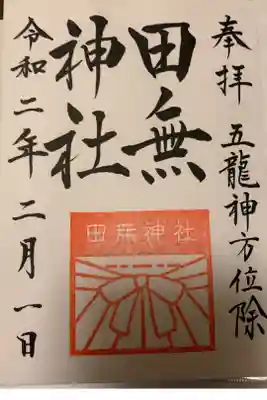 奉拝 五龍神方位除
田無
神社
田無神社
令和二年二月一日